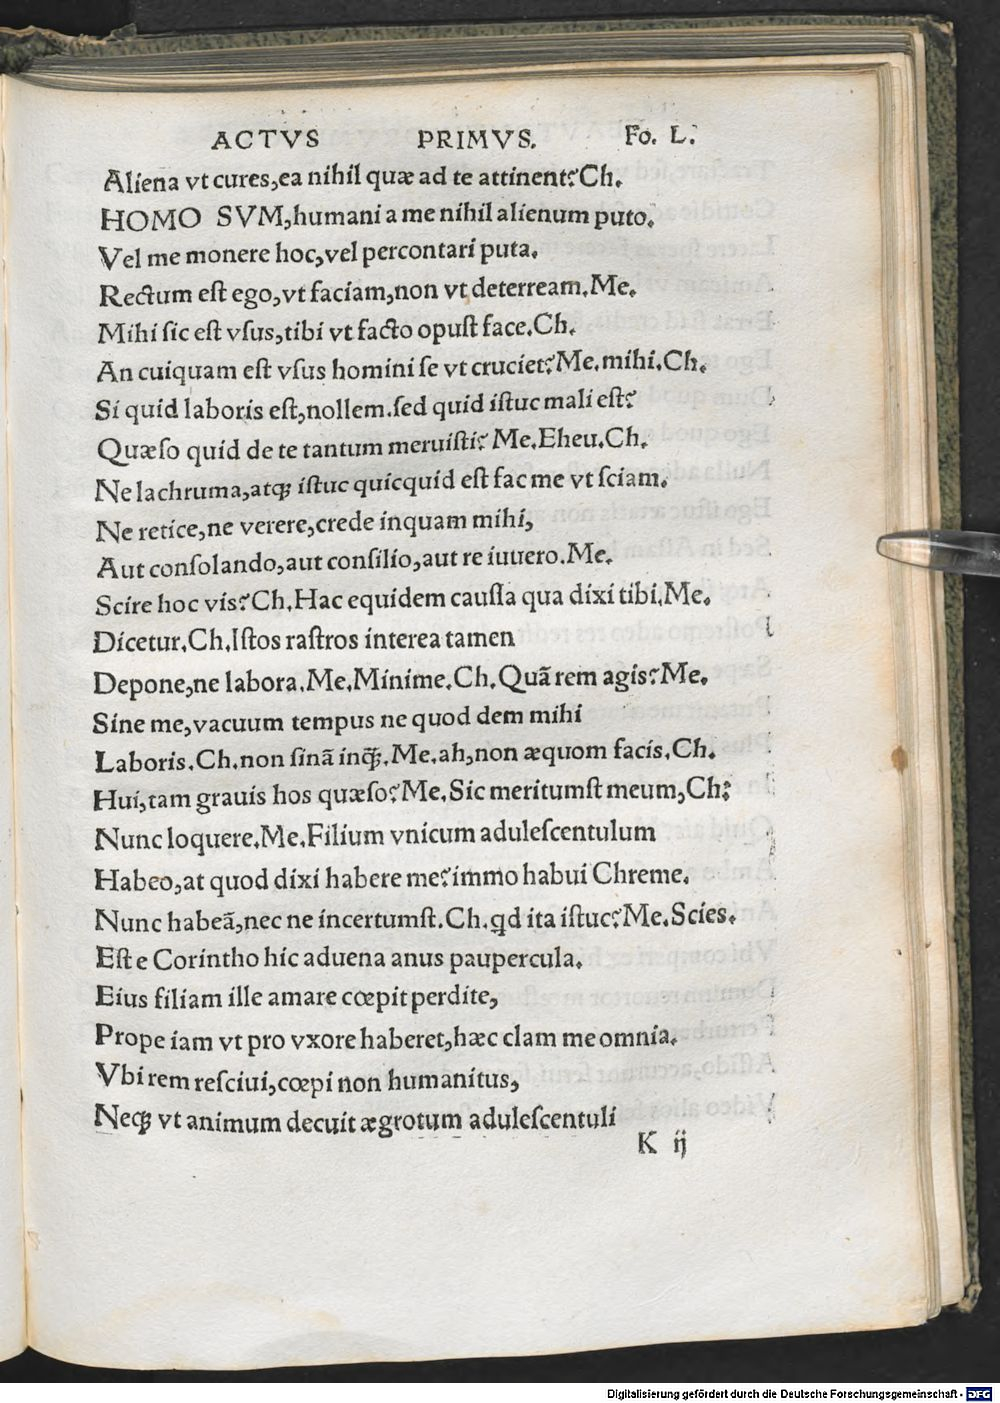 ACTVS PRIMVS. Fo. L.
Aliena vt cures,ea nihil quæ ad te attinent?Ch.
HOMO SVM,humani a me nihil alienum puto.
Vel me monere hoc,vel percontari puta.
Rectum eſt ego,vt faciam,non vt deterream.Me.
Mihi ſic eſt vſus,tibi vt facto opuſt face.Ch.
An cuiquam eſt vſus homini ſe vt cruciet?Me.mihi.Ch.
Si quid laboris eſt,nollem.ſed quid iſtuc mali eſt?
Quæſo quid de te tantum meruiſti? Me.Eheu.Ch.
Ne lachruma,atqꝫ iſtuc quicquid eſt fac me vt ſciam.
Ne retice,ne verere,crede inquam mihi,
Aut conſolando,aut conſilio,aut re iuuero.Me.
Scire hoc vis?Ch.Hac equidem cauſſa qua dixi tibi.Me.
Dicetur.Ch.Iſtos raſtros interea tamen
Depone,ne labora.Me.Minime.Ch.Quã rem agis?Me.
Sine me,vacuum tempus ne quod dem mihi
Laboris.Ch.non ſinã inqꝫ.Me.ah,non æquom facis.Ch.
Hui,tam grauis hos quæſo?Me.Sic meritumſt meum,Ch:
Nunc loquere.Me.Filium vnicum aduleſcentulum
Habeo,at quod dixi habere me?immo habui Chreme.
Nunc habeã,nec ne incertumſt.Ch.qd ita iſtuc?Me.Scies.
Eſt e Corintho hic aduena anus paupercula.
Eius filiam ille amare cœpit perdite,
Prope iam vt pro vxore haberet,hæc clam me omnia.
Vbi rem reſciui,cœpi non humanitus,
Neqꝫ vt animum decuit ægrotum aduleſcentuli
K ij
Digitalisierung gefördert durch die Deutsche Forschungsgemeinschaft - DFG